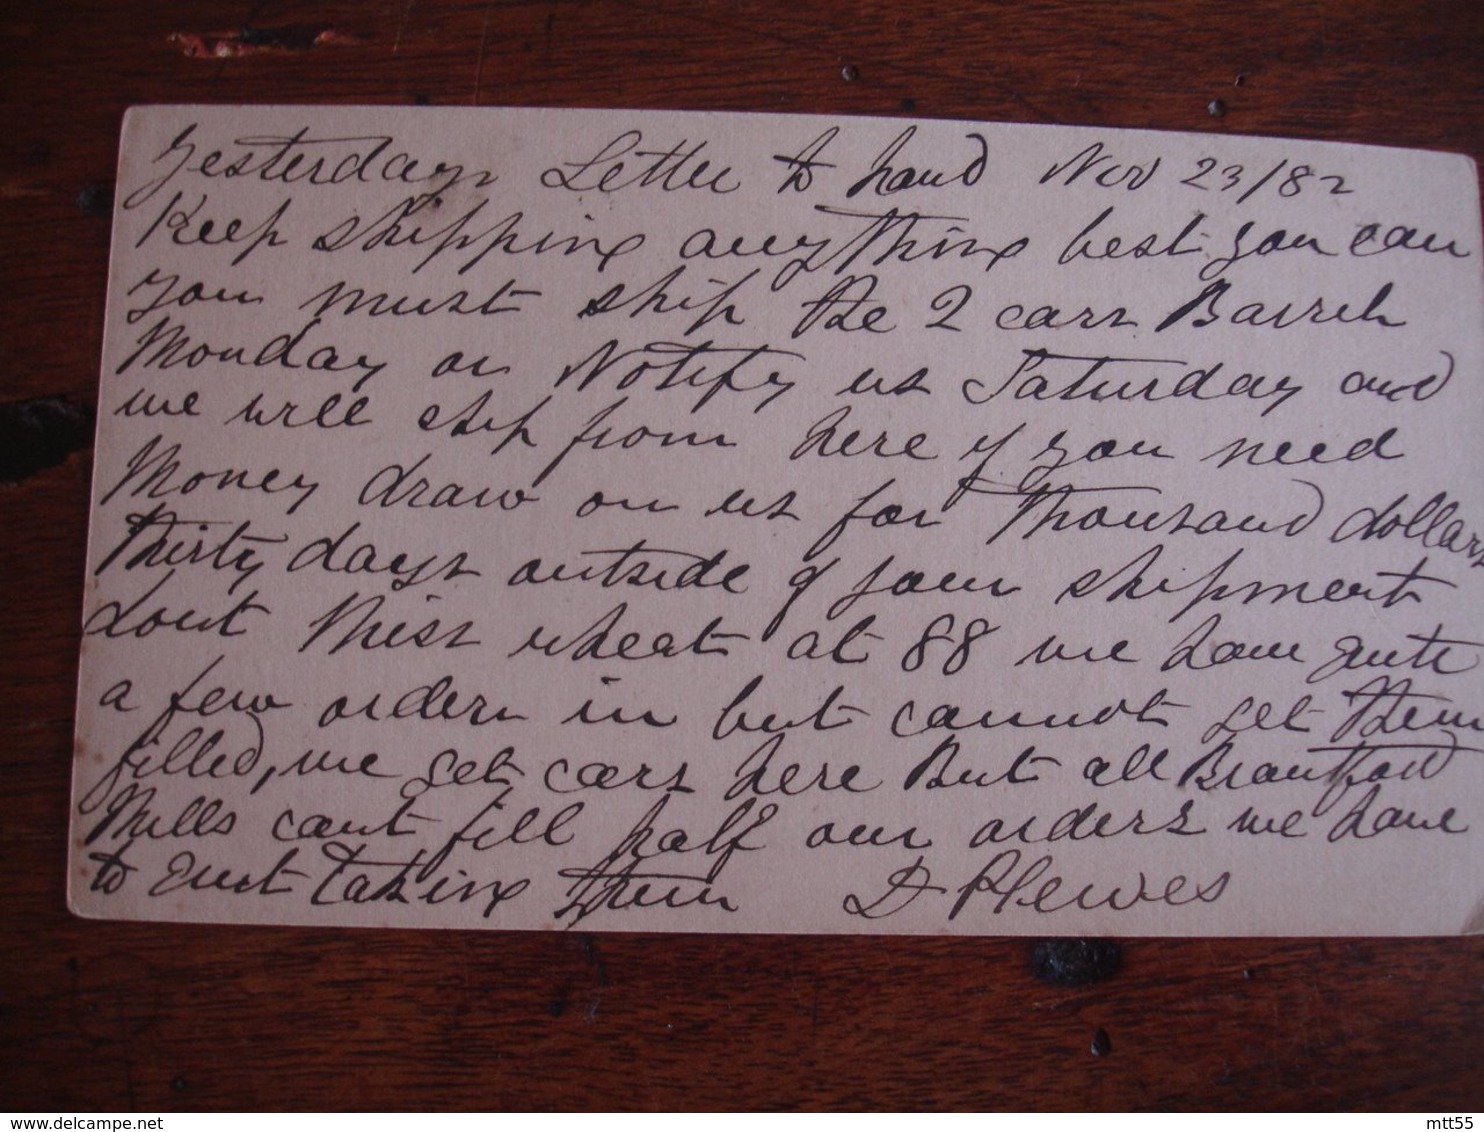 Yesterdays Letter to hand Nov 23/82
Keep shipping anything best you can
you must ship the 2 cars Barrels
Monday or Notify us Saturday and
we will ship from here if you need
Money draw on us for Thousand dollars
thirty days outside of your shipment
dont miss wheat at 88 we have quite
a few orders in but cannot get them
filled, we get cars here But all Brantford
Mills cant fill half our orders we have
to quit taking them D Plewes
mtt55
delcampe.net